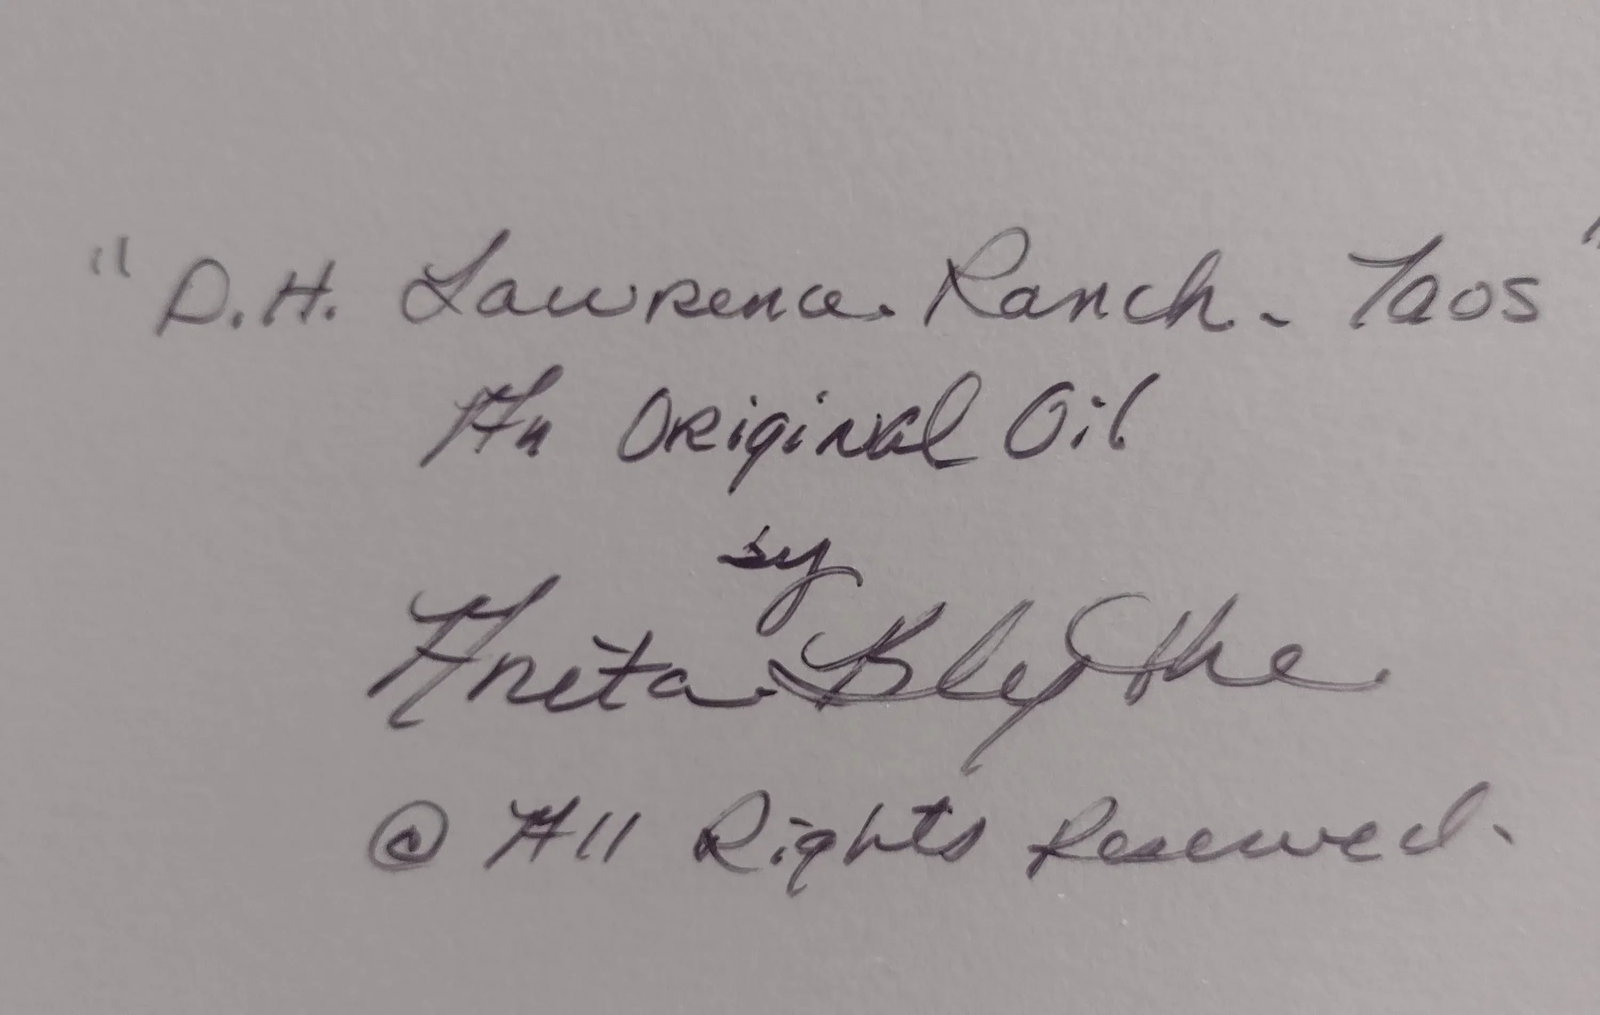 "D.H. Lawrence Ranch - Taos"
An Original Oil
by
Anita Blythe
@ All Rights Reserved.